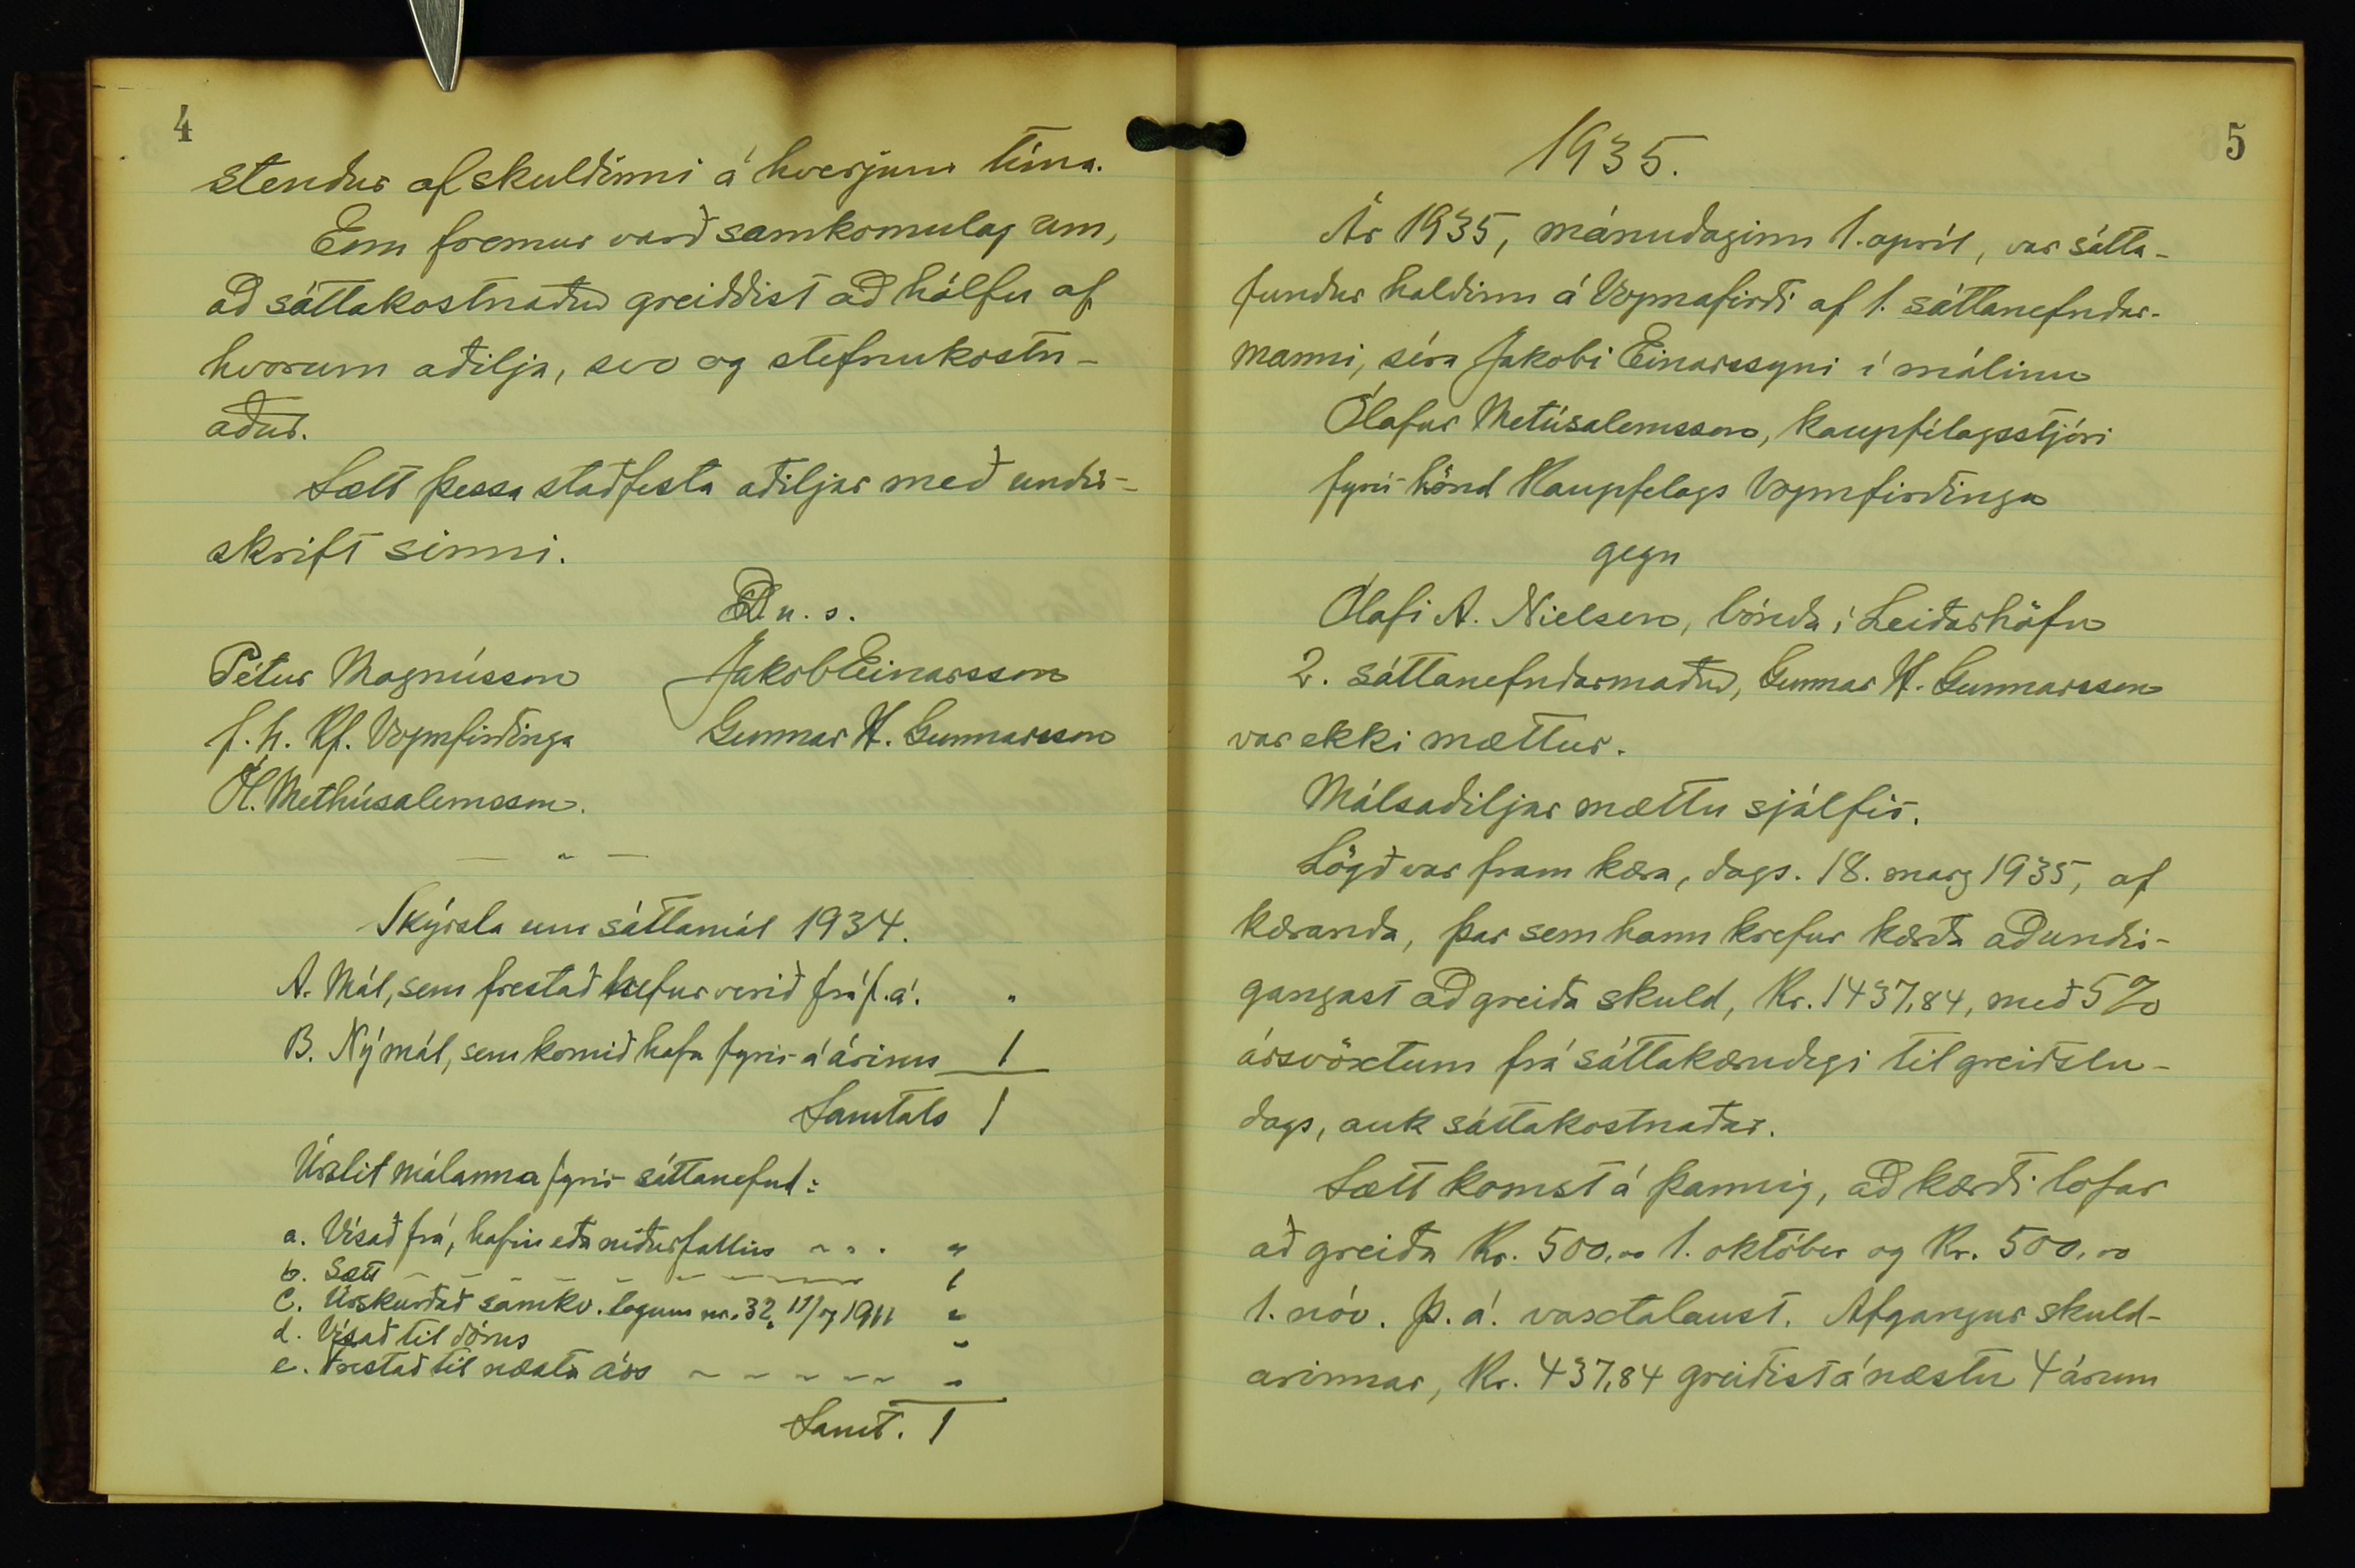 4
stendur af skuldinni á hverjum tíma.
Enn fremur varð samkomulag um,
að sáttakostnaður greiddist að hálfu af
hvorum aðilja, svo og stefnukostn-
aður.
Sætt þessa staðfesta aðiljar með undir-
skrift sinni.
D u. s.
Pétur Magnússon Jakob Einarsson
f. h. Kf. Vopnfirðinga Gunnar H. Gunnarsson
Ól. Methúsalemsson.
— " —
Skýrsla um sáttamál 1934.
A. Mál, sem frestað hefur verið frá f. á. "
B. Ný mál, sem komið hafa fyrir á árinu 1
Samtals 1
Úrslit málanna fyrir sáttanefnd:
a. Vísað frá, hafin eða niðurfallin "
b. Sætt 1
c. Úrskurðað samkv. lögum nr. 32, 11/7 1911 "
d. Vísað til dóms "
e. Frestað til næsta árs "
Samt. 1
5
1935.
Ár 1935, mánudaginn 1. apríl, var sátta-
fundur haldinn á Vopnafirði af 1. sáttanefndar-
manni, séra Jakobi Einarssyni í málinu
Ólafur Metúsalemsson, kaupfélagsstjóri
fyrir hönd Kaupfelags Vopnfirðinga
gegn
Ólafi A. Nielsen, bónda í Leiðarhöfn
2. sáttanefndarmaður, Gunnar H. Gunnarsson
var ekki mættur.
Málsaðiljar mættu sjálfir.
Lögð var fram kæra, dags. 18. marz 1935, af
kæranda, þar sem hann krefur kærða að undir-
gangast að greiða skuld, Kr. 1437,84, með 5%
ársvöxtum frá sáttakærudegi til greiðslu-
dags, auk sáttakostnaðar.
Sætt komst á þannig, að kærði lofar
að greiða Kr. 500,00 1. október og Kr. 500,00
1. nóv. þ. á. vaxtalaust. Afgangur skuld-
arinnar, Kr. 437,84 greiðist á næstu 4 árum